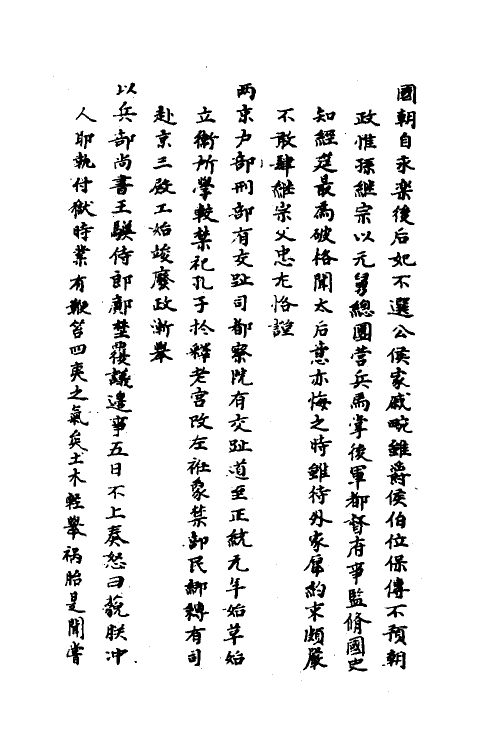 國朝自永楽後后妃不選公侯家戚畹雖爵侯伯位保傳不預朝
政惟孫継宗以元舅總團营兵馬掌後軍都督府事監脩國史
知經筵最為破格聞太后意亦悔之時雖待外家属約束頗嚴
不敢肆継宗父忠尤恪謹
两京户部刑部有交趾司都察院有交趾道至正統元年始革始
立衛所學較禁祀孔子於釋老宮改左衽象禁部民綁轉有司
赴京三殿工始竣廢政漸舉
以兵部尚書王驥侍郎鄺埜覆議邉事五日不上奏怒曰藐朕冲
人耶執付獄時業有鞭笞四夷之氣矣土木軽舉祸胎是聞嘗